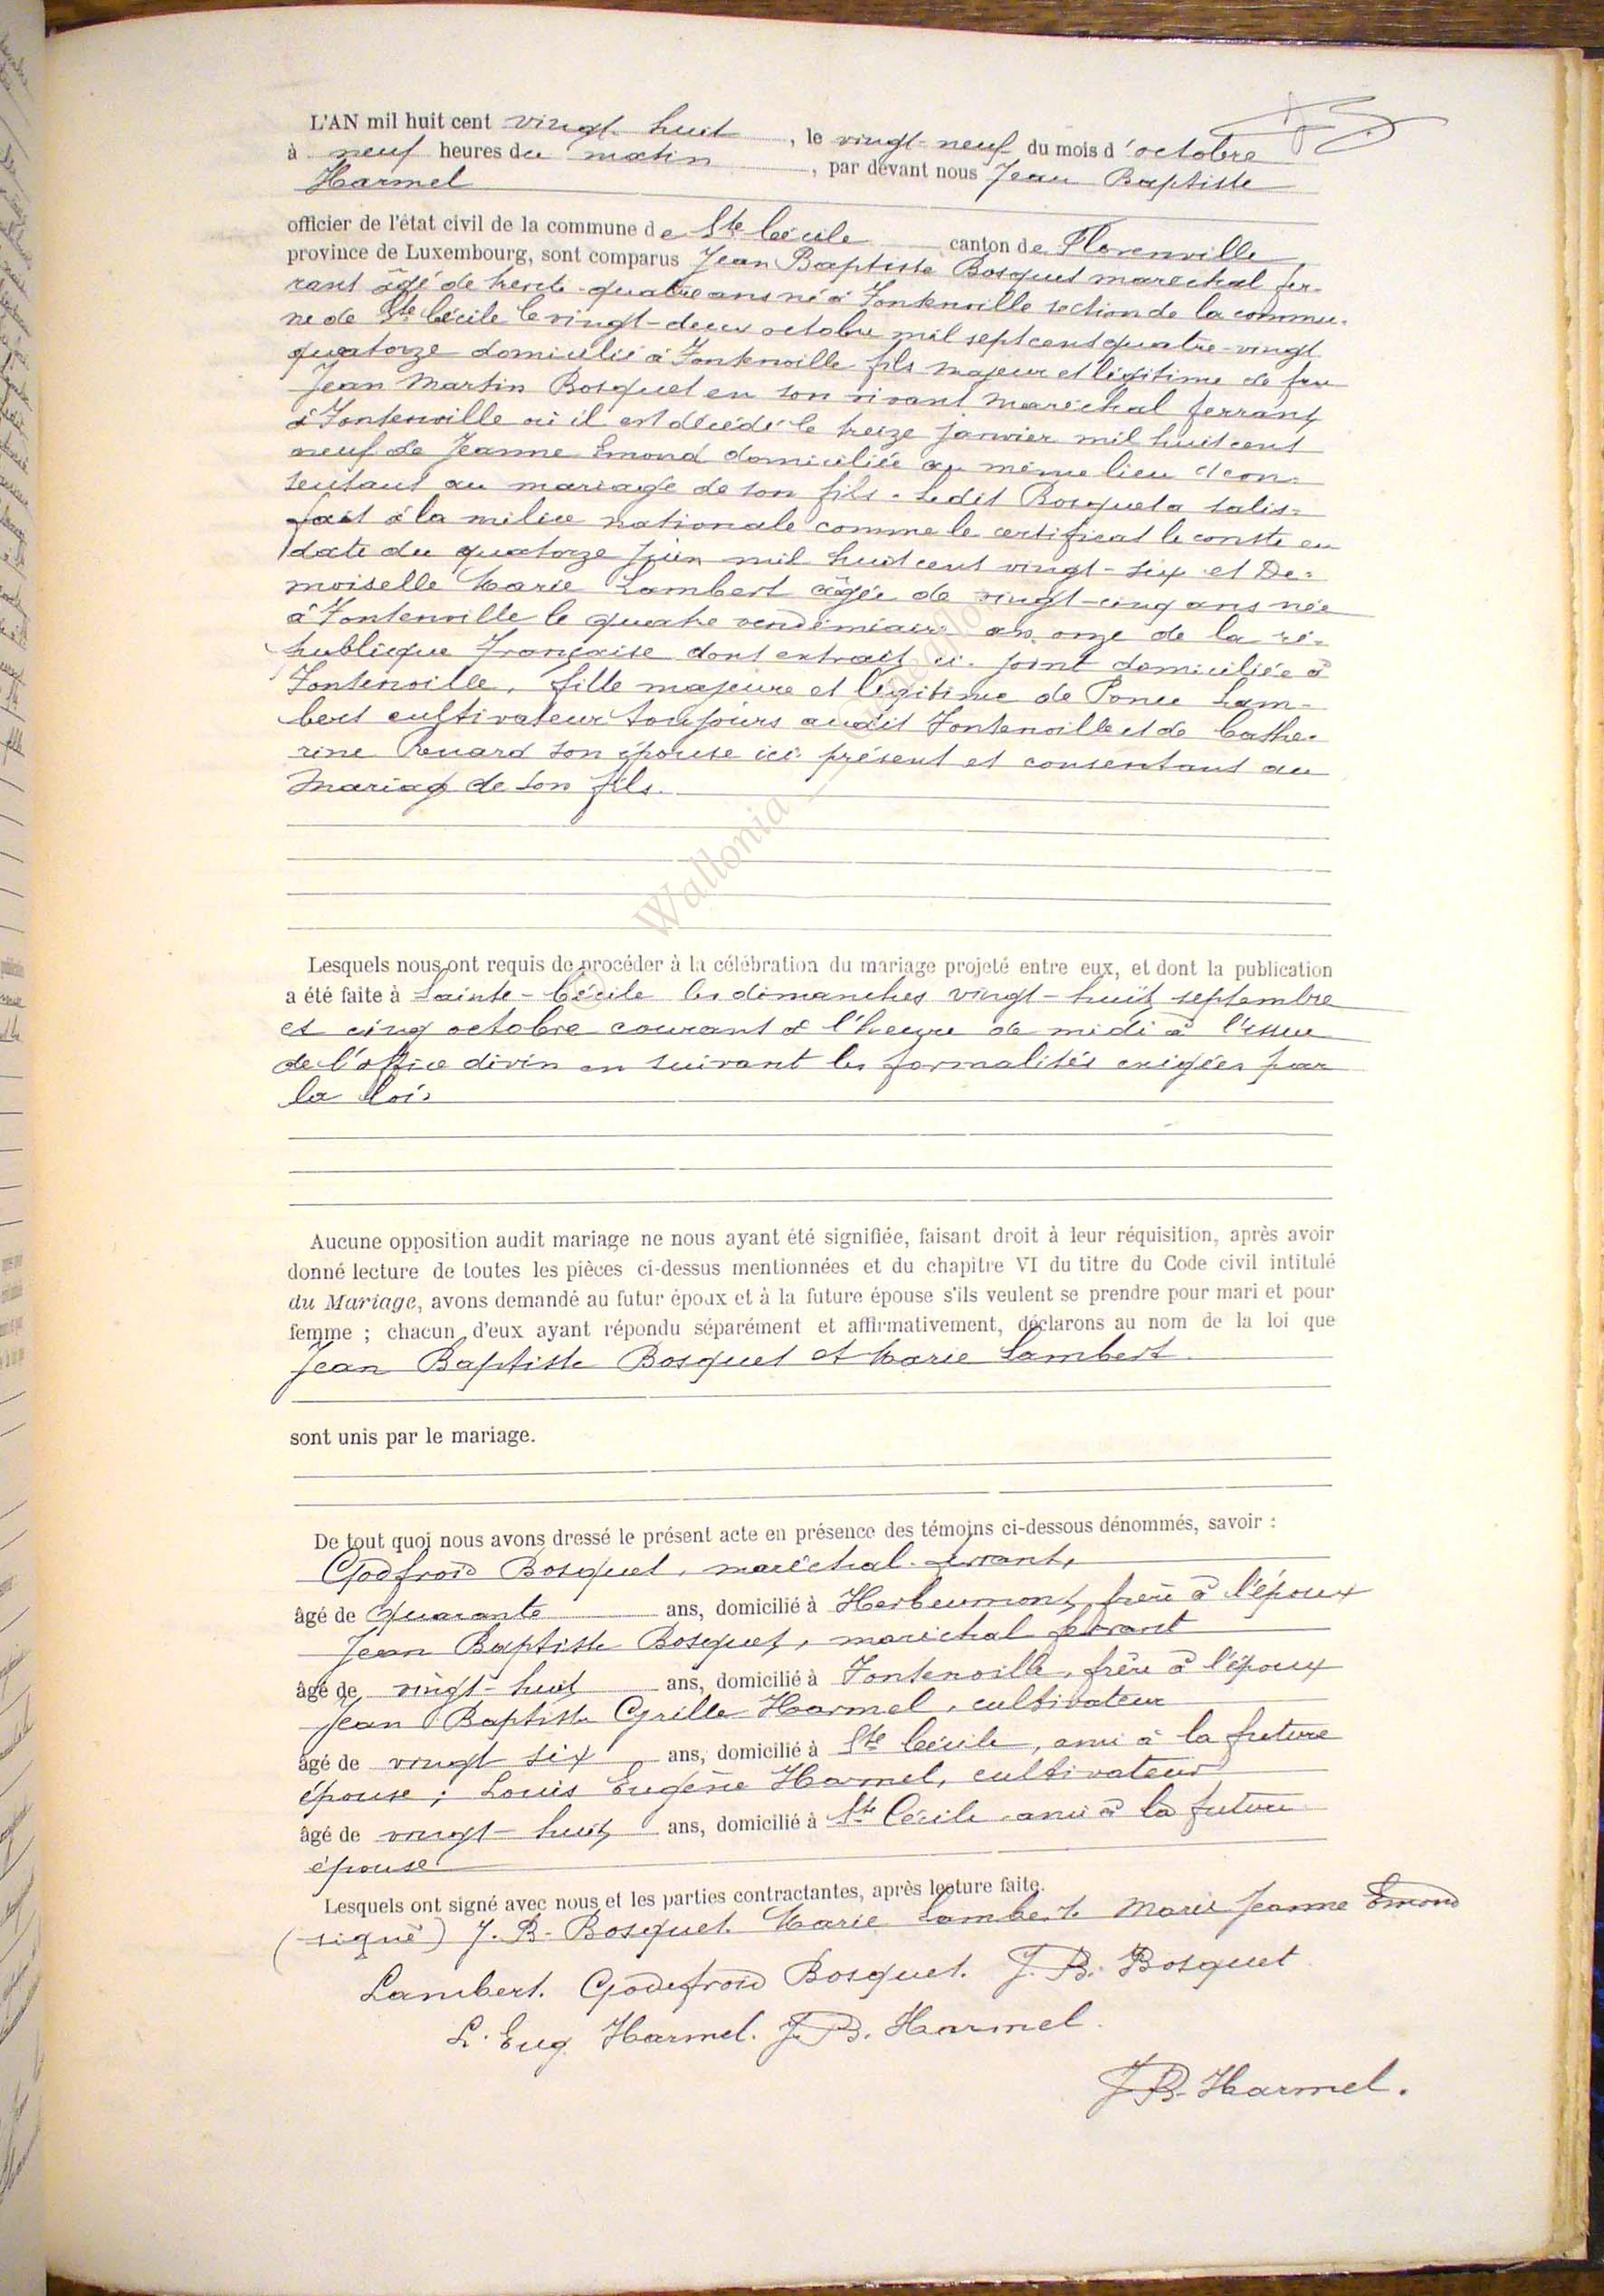 L'AN mil huit cent vingt-huit, le vingt-neuf du mois d'octobre
à neuf heures du matin, par devant nous Jean Baptiste
Harmel
officier de l'état civil de la commune de Ste Cécile canton de Florenville,
province de Luxembourg, sont comparus Jean Baptiste Bosquet maréchal fer-
rant âgé de trente-quatre ans né à Fontenoille section de la commu-
ne de Ste Cécile le vingt-deux octobre mil sept cent quatre-vingt
quatorze domicilié à Fontenoille fils majeur et légitime de feu
Jean Martin Bosquet en son vivant maréchal ferrant
à Fontenoille où il est décédé le treize janvier mil huit cent
neuf de Jeanne Emond domiciliée au même lieu et con-
sentant au mariage de son fils. Ledit Bosquet a satis-
fait à la milice nationale comme le certificat le conste en
date du quatorze juin mil huit cent vingt-six et De-
moiselle Marie Lambert âgée de vingt-cinq ans née
à Fontenoille le quatre vendémiaire an onze de la ré-
publique française dont extrait ci-joint domiciliée à
Fontenoille, fille majeure et légitime de Ponce Lam-
bert cultivateur toujours audit Fontenoille et de Cathe-
rine Renard son épouse ici présent et consentant au
mariage de son fils.
Lesquels nous ont requis de procéder à la célébration du mariage projeté entre eux, et dont la publication
a été faite à Sainte-Cécile les dimanches vingt-huit septembre
et cinq octobre courant à l'heure de midi à l'issue
de l'office divin en suivant les formalités exigées par
la loi.
Aucune opposition audit mariage ne nous ayant été signifiée, faisant droit à leur réquisition, après avoir
donné lecture de toutes les pièces ci-dessus mentionnées et du chapitre VI du titre du Code civil intitulé
du Mariage, avons demandé au futur époux et à la future épouse s'ils veulent se prendre pour mari et pour
femme ; chacun d'eux ayant répondu séparément et affirmativement, déclarons au nom de la loi que
Jean Baptiste Bosquet et Marie Lambert.
sont unis par le mariage.
De tout quoi nous avons dressé le présent acte en présence des témoins ci-dessous dénommés, savoir :
Godfroid Bosquet, maréchal-ferrant,
âgé de quarante ans, domicilié à Herbeumont, frère à l'époux
Jean Baptiste Bosquet, maréchal ferrant
âgé de vingt-huit ans, domicilié à Fontenoille, frère à l'époux
Jean Baptiste Grille Harmel, cultivateur
âgé de vingt six ans, domicilié à Ste Cécile, ami à la future
épouse ; Louis Eugène Harmel, cultivateur
âgé de vingt-huit ans, domicilié à Ste Cécile ami à la future
épouse
Lesquels ont signé avec nous et les parties contractantes, après lecture faite.
(signé) J. B. Bosquet. Marie Lambert. Marie Jeanne Emond
Lambert. Godefroid Bosquet. J. B. Bosquet
L. Eug. Harmel. J. B. Harmel.
J B. Harmel.
© Wallonia